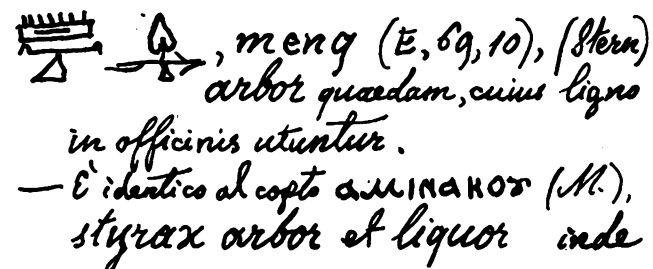 , meng (E, 69, 10), (Stern)
arbor quaedam, cuius ligno
in officinis utuntur.
— È identico al copto ⲁⲙⲓⲛⲁⲕⲟⲩ (M.),
styrax arbor et liquor inde